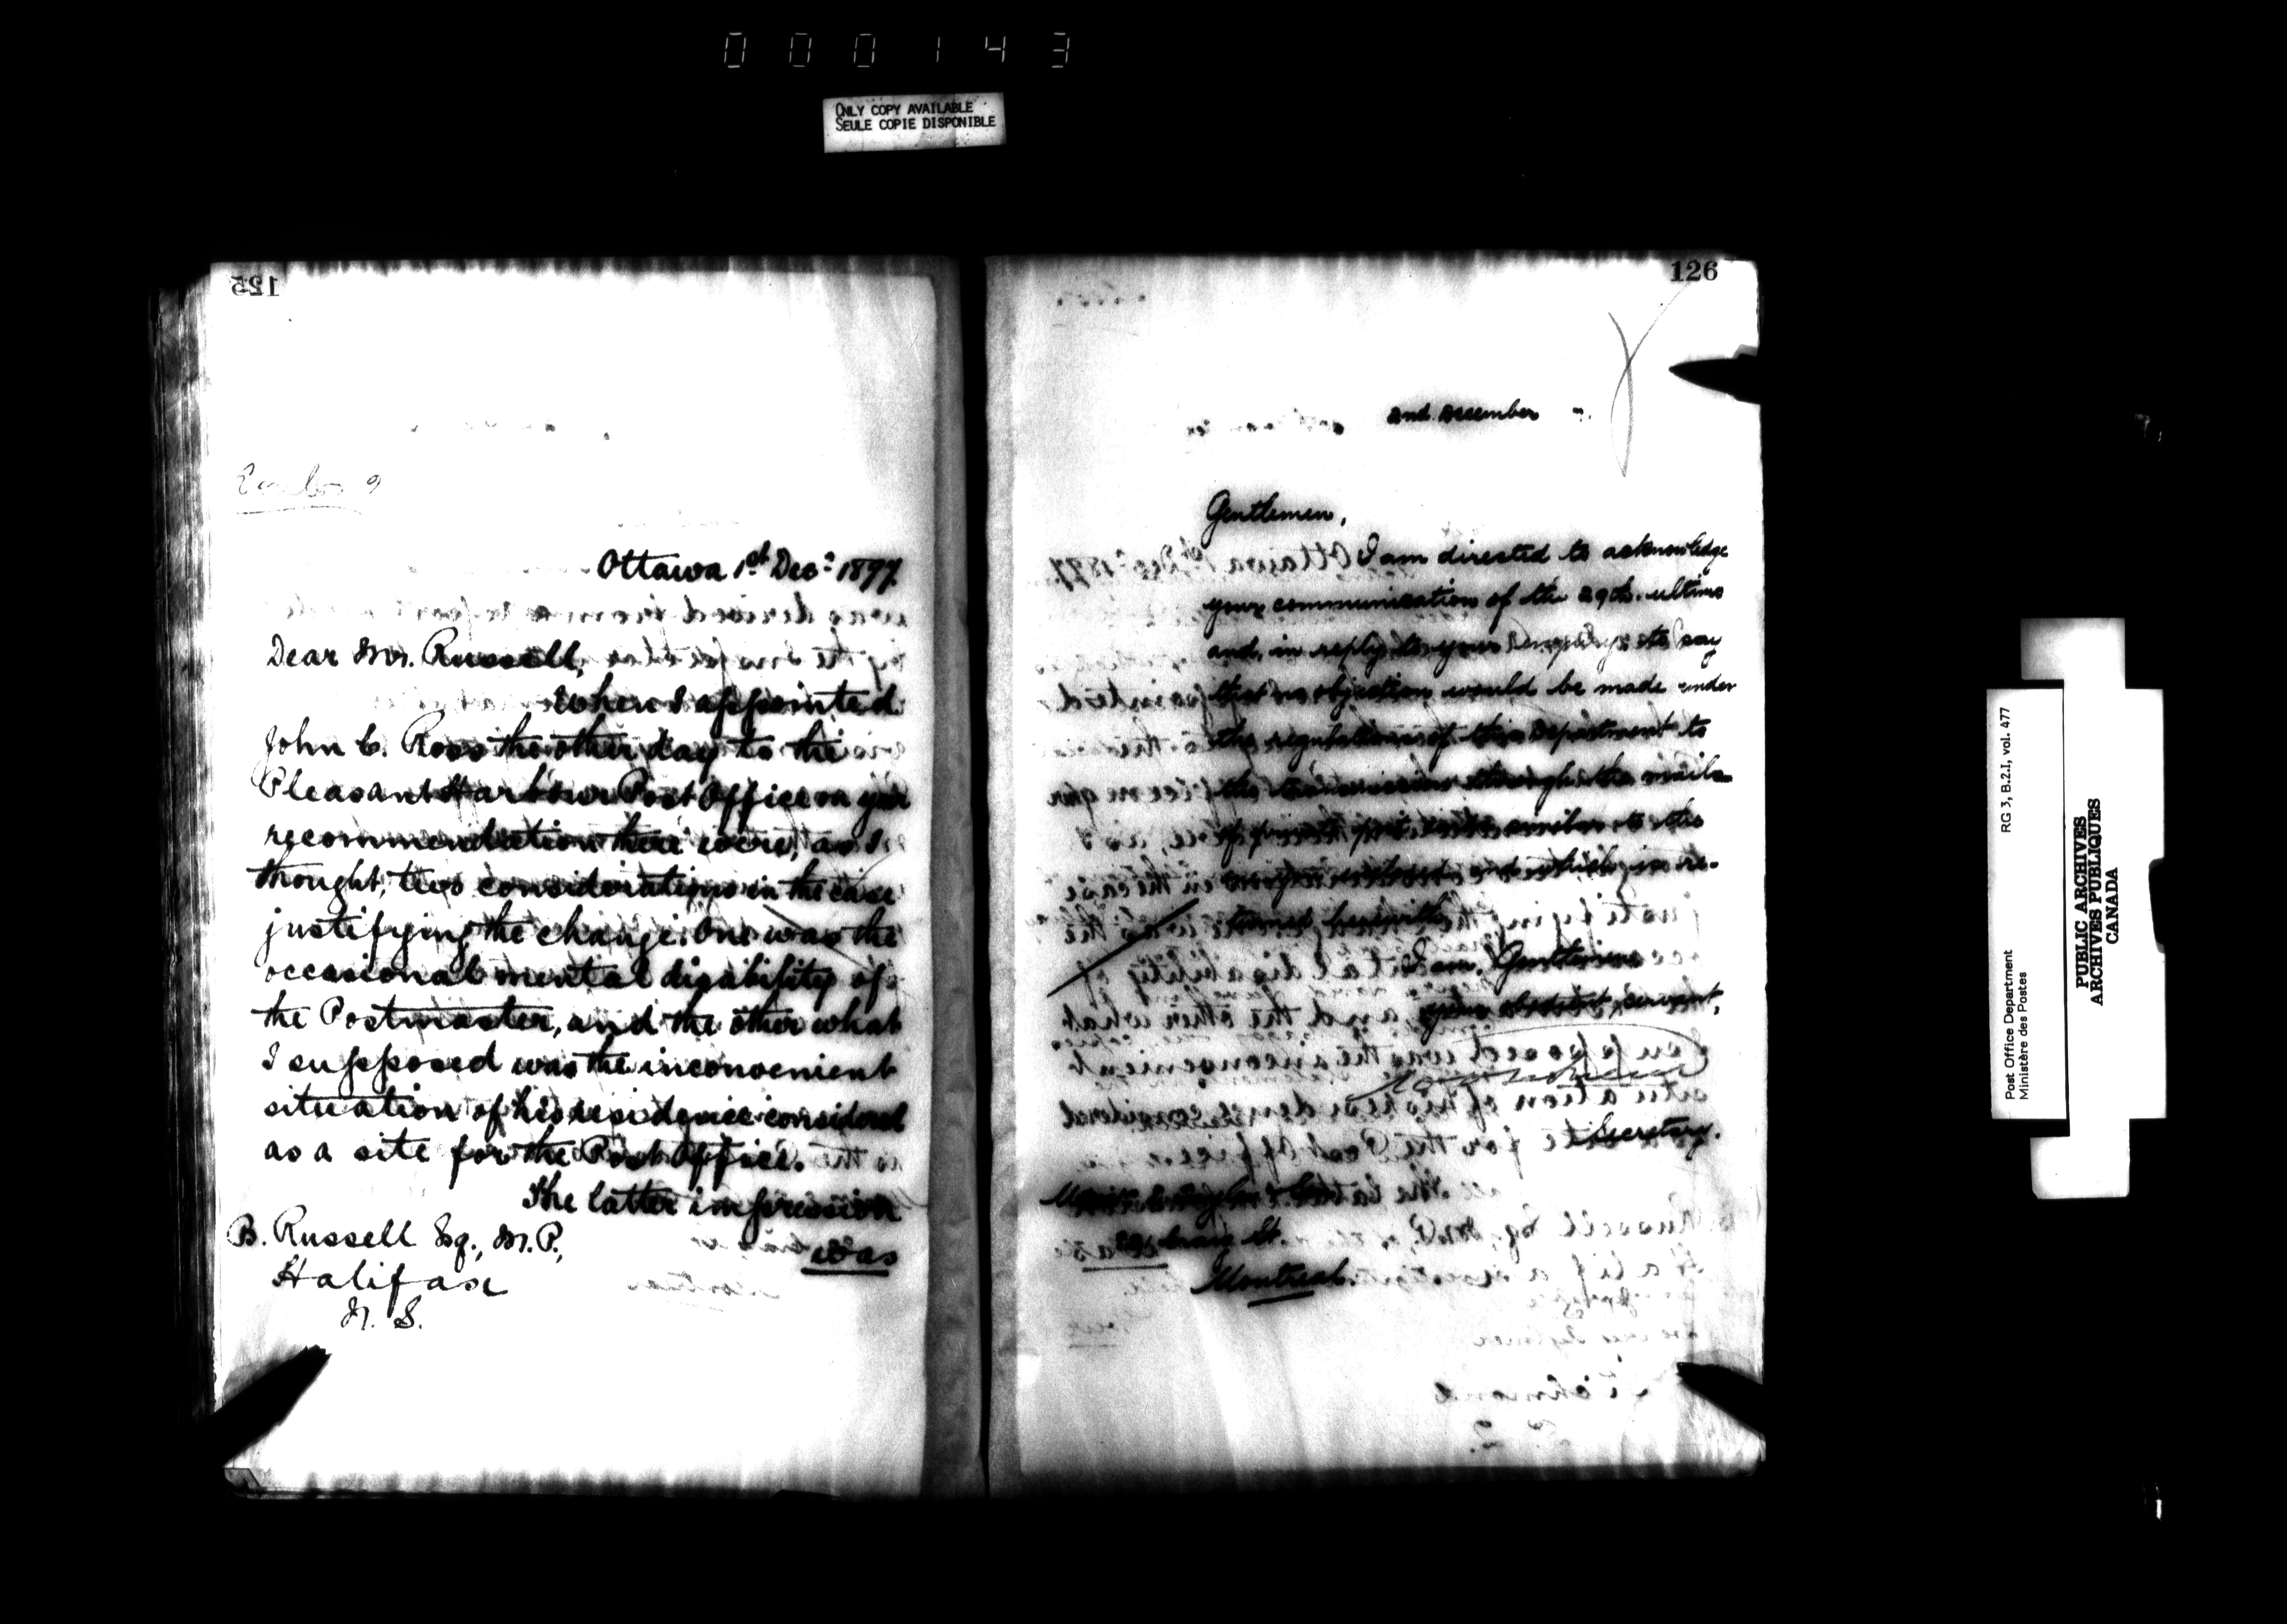 000143
ONLY COPY AVAILABLE
SEULE COPIE DISPONIBLE
125
Ottawa 1st Dec. 1897.
Dear Mr. Russell,
When I appointed
John C. Ross the other day to the
Pleasant Harbour Post Office on your
recommendation there were, as I
thought, two considerations in the case
justifying the change. One was the
occasional mental disability of
the Postmaster, and the other what
I supposed was the inconvenient
situation of his residence considered
as a site for the Post Office.
The latter impression
was
B. Russell Esq., M.P.,
Halifax
N. S.
126
2nd December 7.
Gentlemen,
I am directed to acknowledge
your communication of the 29th. ultimo
and, in reply to your enquiry, to say
that no objection would be made under
the regulations of this Department to
the transmission through the mails
of private post cards similar to the
enclosed and which is re-
turned herewith.
I am, Gentlemen,
your obedient servant,
Secretary.
Craig St.
Montreal.
Post Office Department
Ministère des Postes
RG 3, B.2.I, vol. 477
PUBLIC ARCHIVES
ARCHIVES PUBLIQUES
CANADA